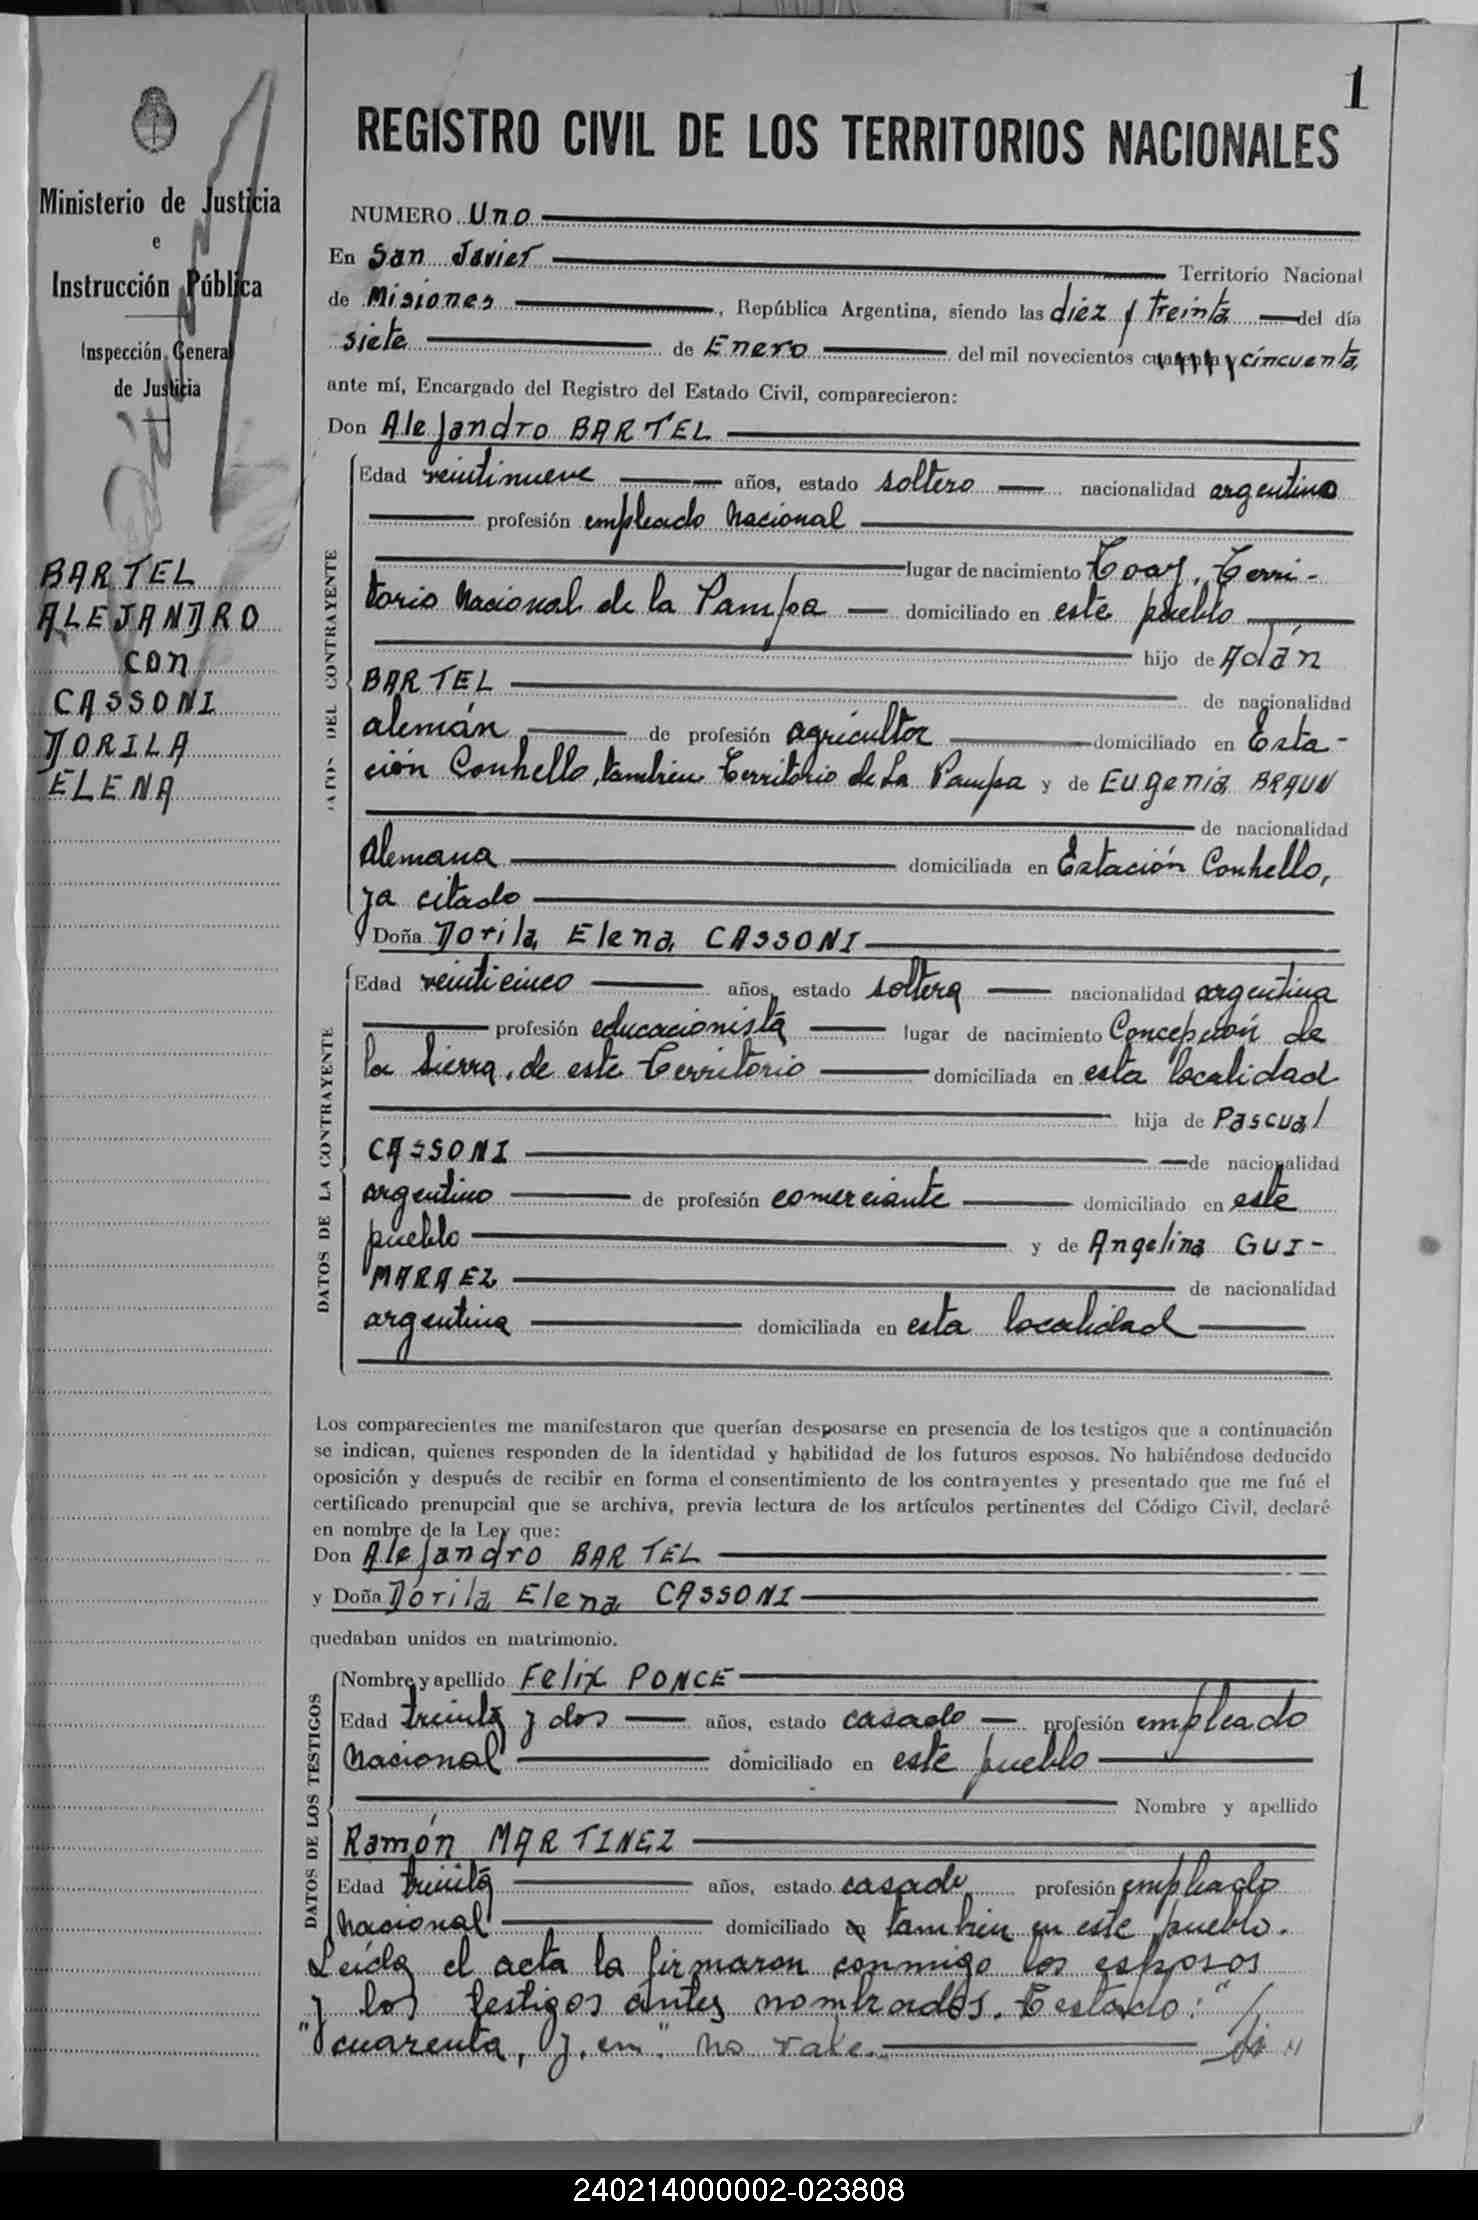 1
REGISTRO CIVIL DE LOS TERRITORIOS NACIONALES
Ministerio de Justicia
e
Instrucción Pública
Inspección General
de Justicia
BARTEL
ALEJANDRO
con
CASSONI
DORILA
ELENA
NUMERO Uno
En San Javier Territorio Nacional
de Misiones, República Argentina, siendo las diez y treinta del día
siete de Enero del mil novecientos cuarenta y cincuenta,
ante mí, Encargado del Registro del Estado Civil, comparecieron:
Don Alejandro BARTEL
DATOS DEL CONTRAYENTE
Edad veintinueve años, estado soltero nacionalidad argentino
profesión empleado Nacional
lugar de nacimiento Toay, Terri-
torio Nacional de la Pampa domiciliado en este pueblo
hijo de Adán
BARTEL de nacionalidad
alemán de profesión agricultor domiciliado en Esta-
ción Conhello, tambien Territorio de La Pampa y de Eugenia BRAUN
de nacionalidad
Alemana domiciliada en Estación Conhello,
ya citado
y Doña Dorila Elena CASSONI
DATOS DE LA CONTRAYENTE
Edad veinticinco años, estado soltera nacionalidad argentina
profesión educacionista lugar de nacimiento Concepción de
la Sierra, de este Territorio domiciliada en esta localidad
hija de Pascual
CASSONI de nacionalidad
argentino de profesión comerciante domiciliado en este
pueblo y de Angelina GUI-
MARAEZ de nacionalidad
argentina domiciliada en esta localidad
Los comparecientes me manifestaron que querían desposarse en presencia de los testigos que a continuación
se indican, quienes responden de la identidad y habilidad de los futuros esposos. No habiéndose deducido
oposición y después de recibir en forma el consentimiento de los contrayentes y presentado que me fué el
certificado prenupcial que se archiva, previa lectura de los artículos pertinentes del Código Civil, declaré
en nombre de la Ley que:
Don Alejandro BARTEL
y Doña Dorila Elena CASSONI
quedaban unidos en matrimonio.
DATOS DE LOS TESTIGOS
Nombre y apellido Felix PONCE
Edad treinta y dos años, estado casado profesión empleado
Nacional domiciliado en este pueblo
Nombre y apellido
Ramón MARTINEZ
Edad treinta años, estado casado profesión empleado
Nacional domiciliado en tambien en este pueblo.
Leída el acta la firmaron conmigo los esposos
y los testigos antes nombrados. Testado: "
"cuarenta, y, en" no vale.
240214000002-023808